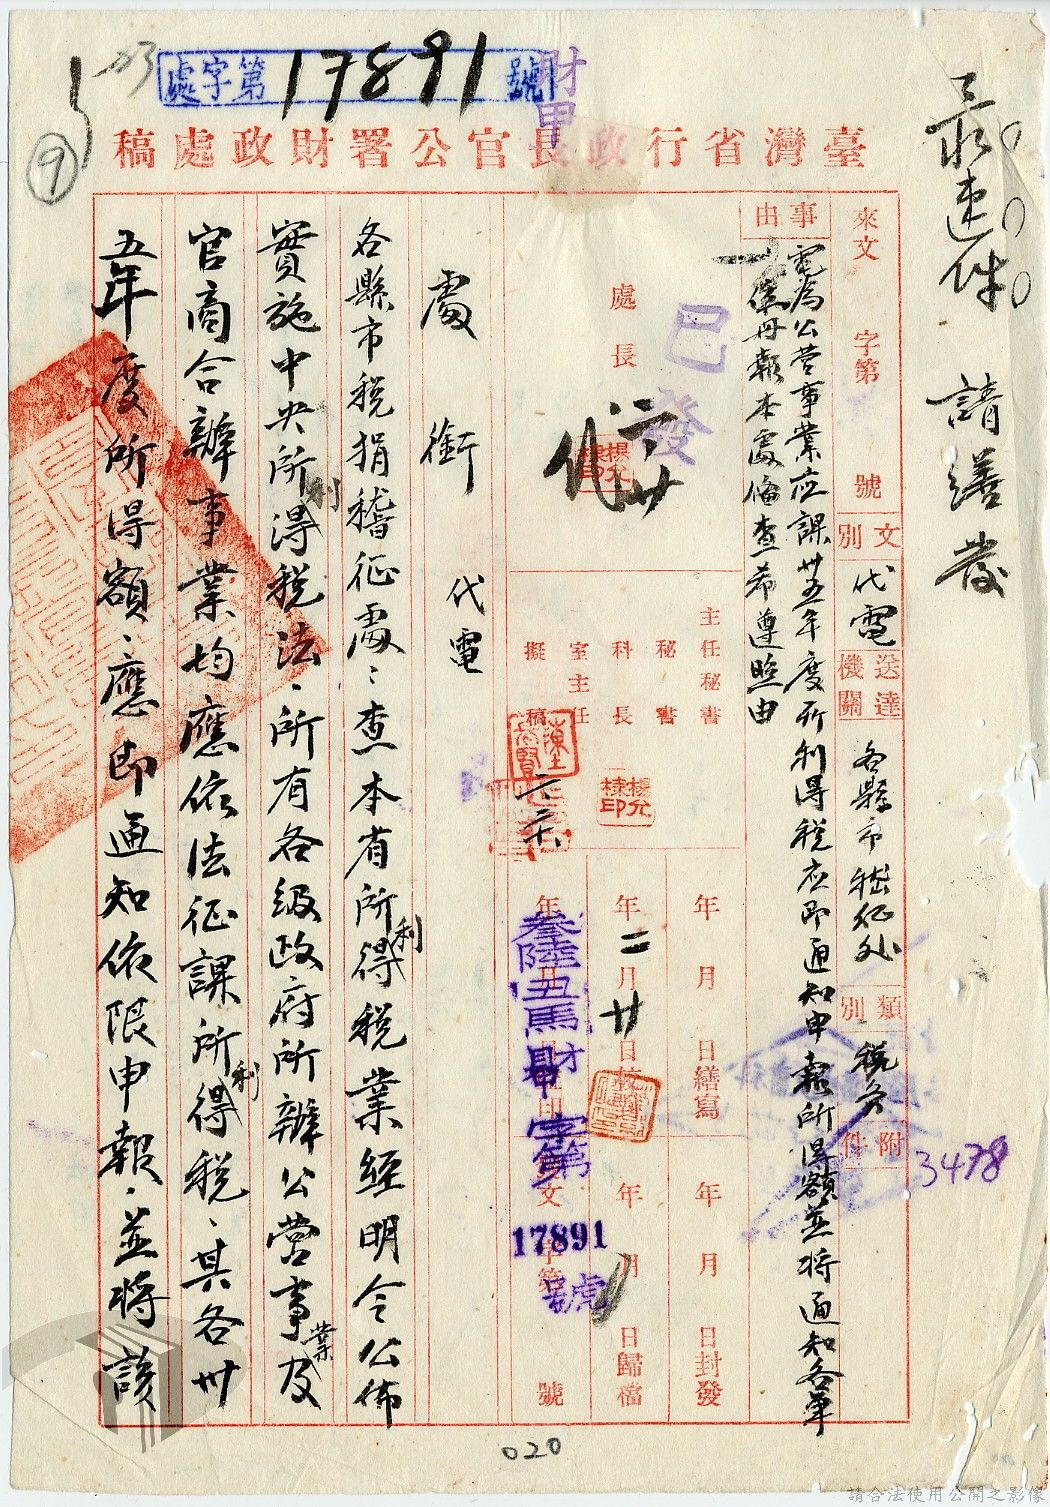 最速件　請繕發
處字第17891號
財甲
臺灣省行政長官公署財政處稿
9
來文　字第　號
文別　代電
送達機關　各縣市稅征處
類別　稅務
附件
3478
事由
電為公營事業应課卅五年度所利得稅应即通知申報所得額並將通知各單
一律冊報本處備查希遵照由
已發
處長
代
六廿
楊允棣印
主任秘書
秘書
科長
楊允棣印
室主任
擬稿
年　月　日繕寫
年　月　日封發
年二月廿日
年　月　日歸檔
叁陸丑馬財甲字第
17891
號
處銜　代電
各縣市稅捐稽征處：查本省所利得稅業經明令公佈
實施中央所利得稅法、所有各級政府所辦公營事業及
官商合辦事業均應依法征課所利得稅、其各卅
五年度所得額、應即通知依限申報、並將該
020
請合法使用公開之影像